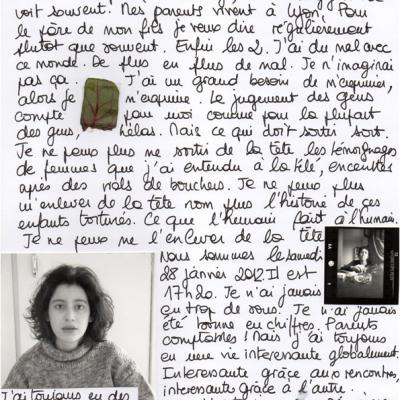 voit souvent! Mes parents vivent à Lyon. Pour
le père de mon fils je veux dire régulièrement
plutot que souvent. Enfin les 2. J'ai du mal avec
ce monde. De plus en plus de mal. Je n'imaginais
pas ça. J'ai un grand besoin de m'exprimer,
alors je m'exprime. Le jugement des gens
compte pour moi comme pour la plupart
des gens, hélas. Mais ce qui doit sortir sort.
Je ne peux plus me sortir de la tête les témoignages
de femmes que j'ai entendu à la télé, enceintes
après des viols de bouchers. Je ne peux plus
m'enlever de la tête non plus l'histoire de ces
enfants torturés. Ce que l'humain fait à l'humain.
Je ne peux me l'enlever de la tête
Nous sommes le samedi
28 janvier 2012. Il est
17h20. Je n'ai jamais
eu trop de sous. Je n'ai jamais
été bonne en chiffres. Parents
comptables! Mais j'ai toujours
eu une vie interessante globalement.
Interessante grâce aux rencontres,
interessante grâce à l'autre.
J'ai toujours eu des